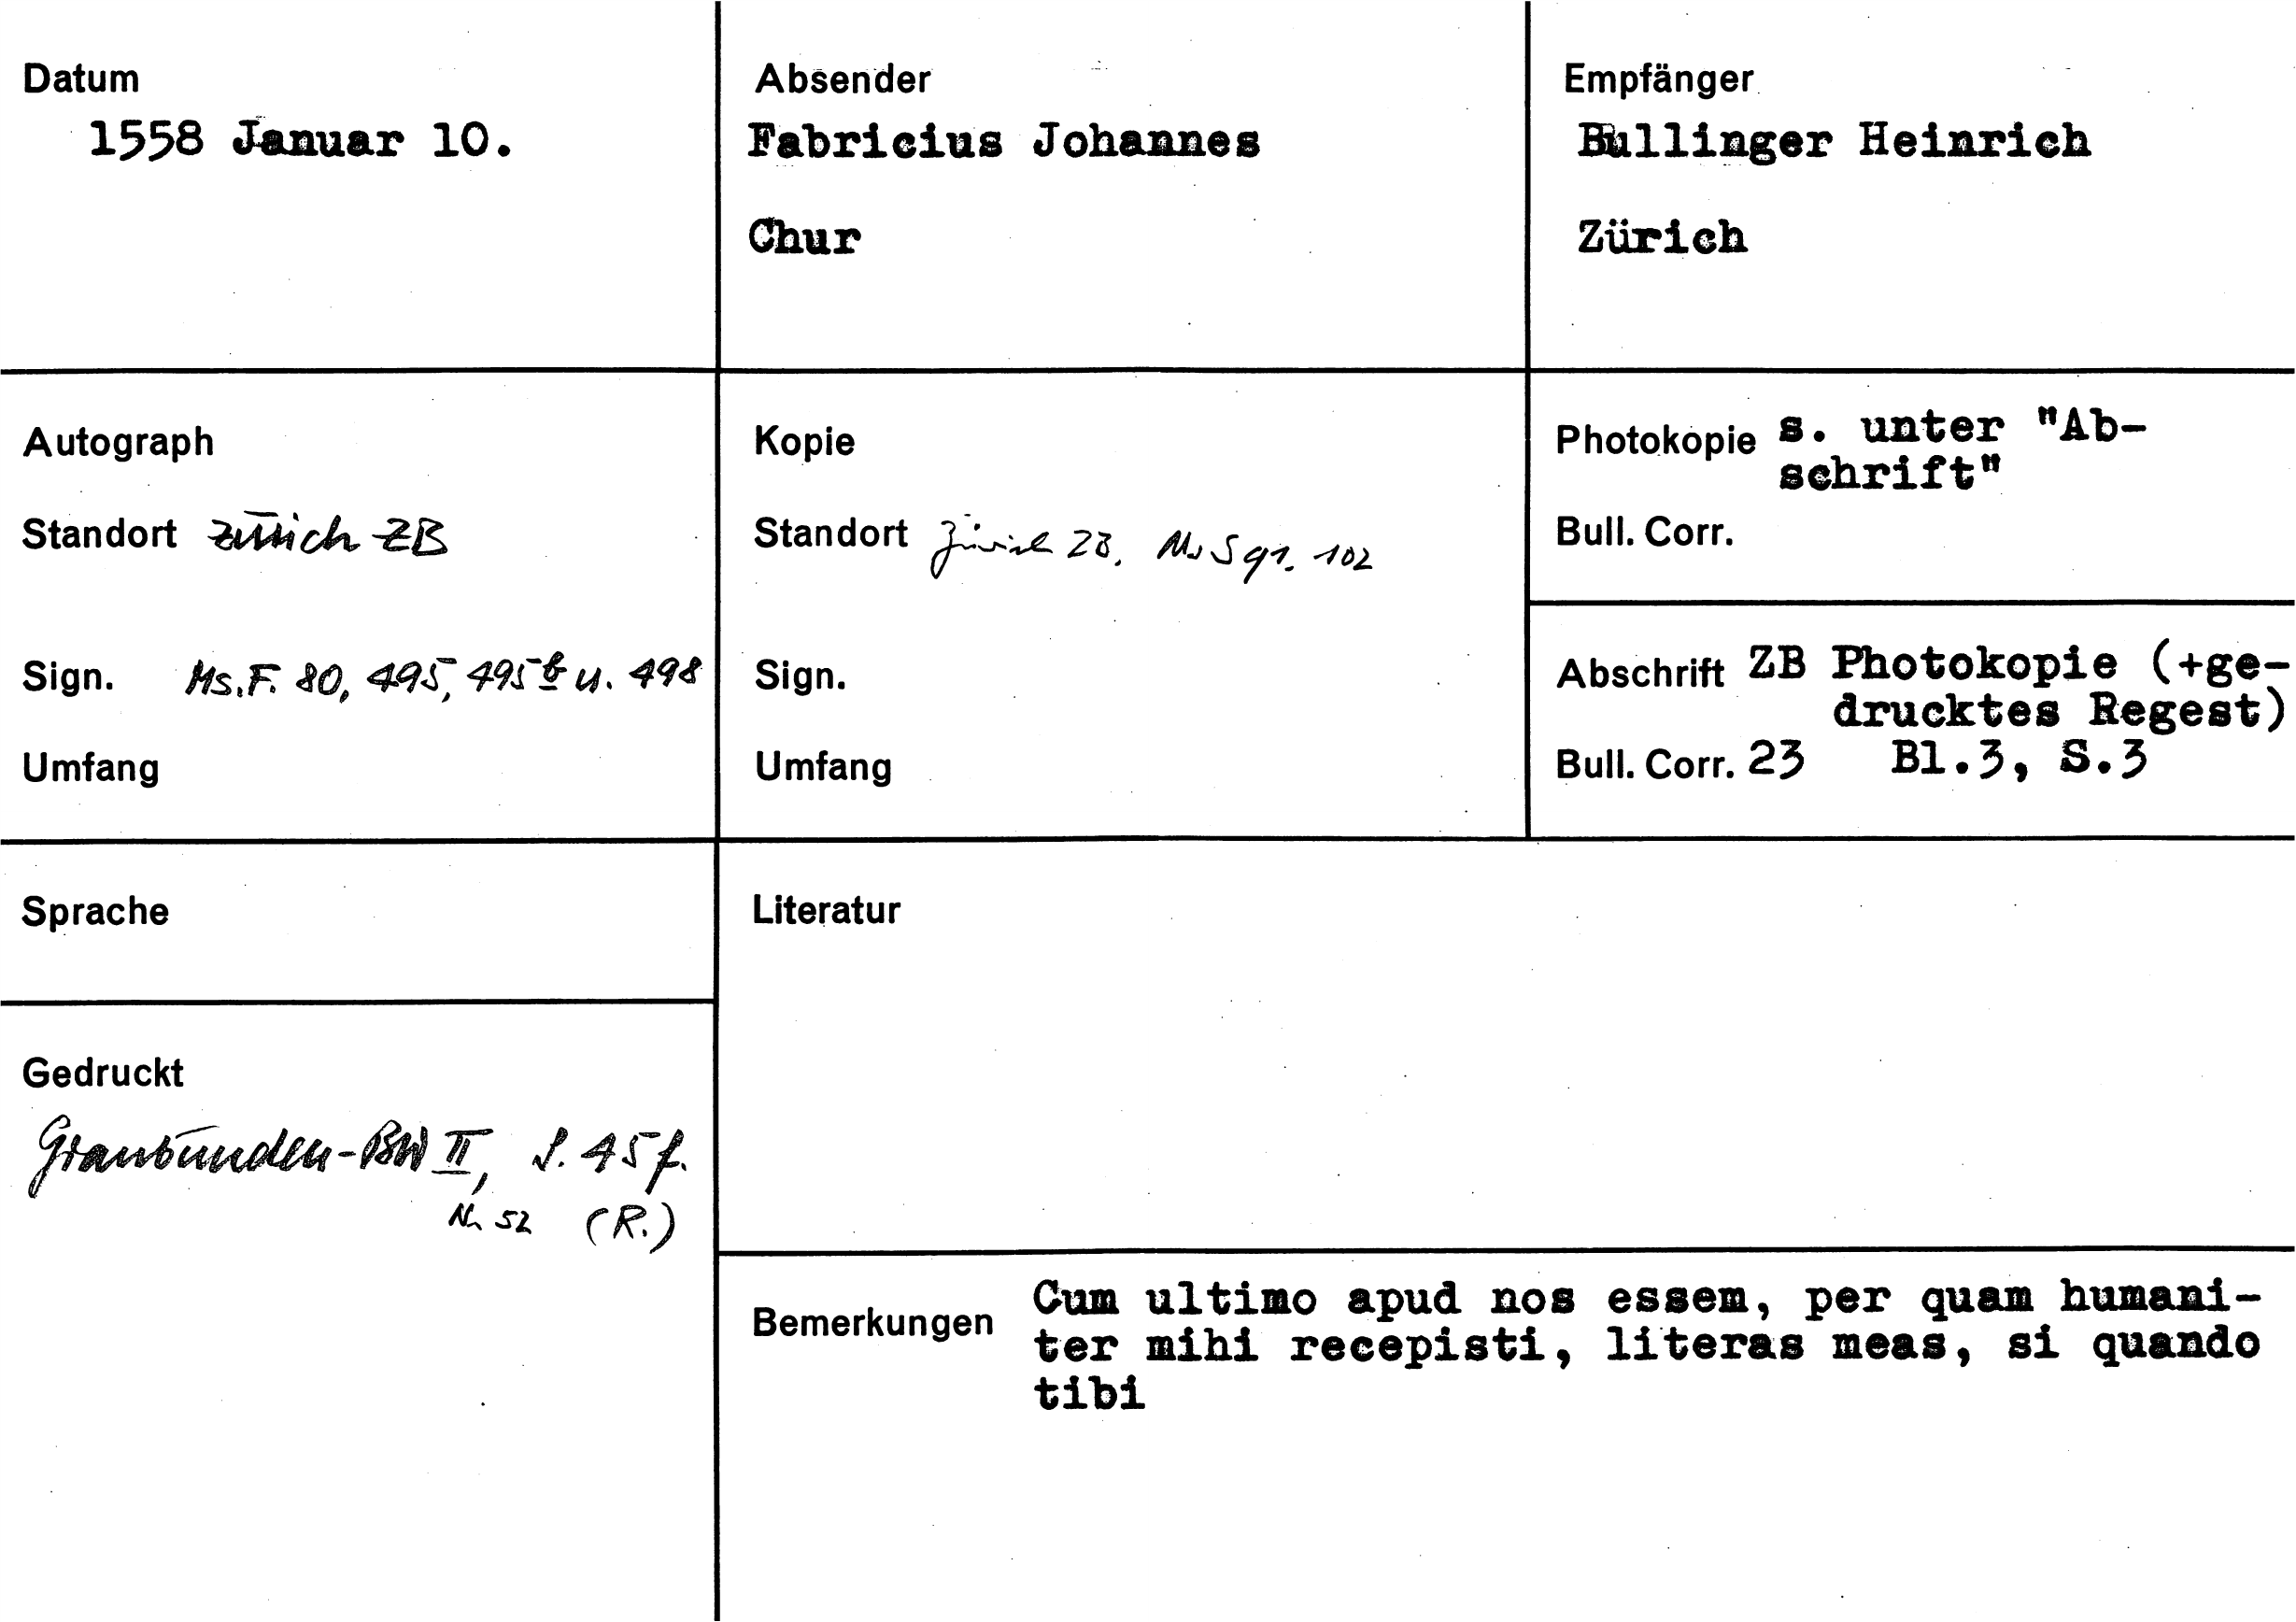 Datum
1558 Januar 10.
Absender
Fabricius Johannes
Chur
Empfänger
Bullinger Heinrich
Zürich
Autograph
Standort Zürich ZB
Sign. Ms.F. 80, 495, 495b u. 498
Umfang
Kopie
Standort Zürich ZB, Ms S 91. 102
Sign.
Umfang
Photokopie s. unter "Ab-
schrift"
Bull. Corr.
Abschrift ZB Photokopie (+ge-
drucktes Regest)
Bull. Corr. 23 Bl.3, S.3
Sprache
Literatur
Gedruckt
Graubünden-BW II, S. 45 f.
Nr. 52 (R.)
Bemerkungen Cum ultimo apud nos essem, per quam humani-
ter mihi recepisti, literas meas, si quando
tibi